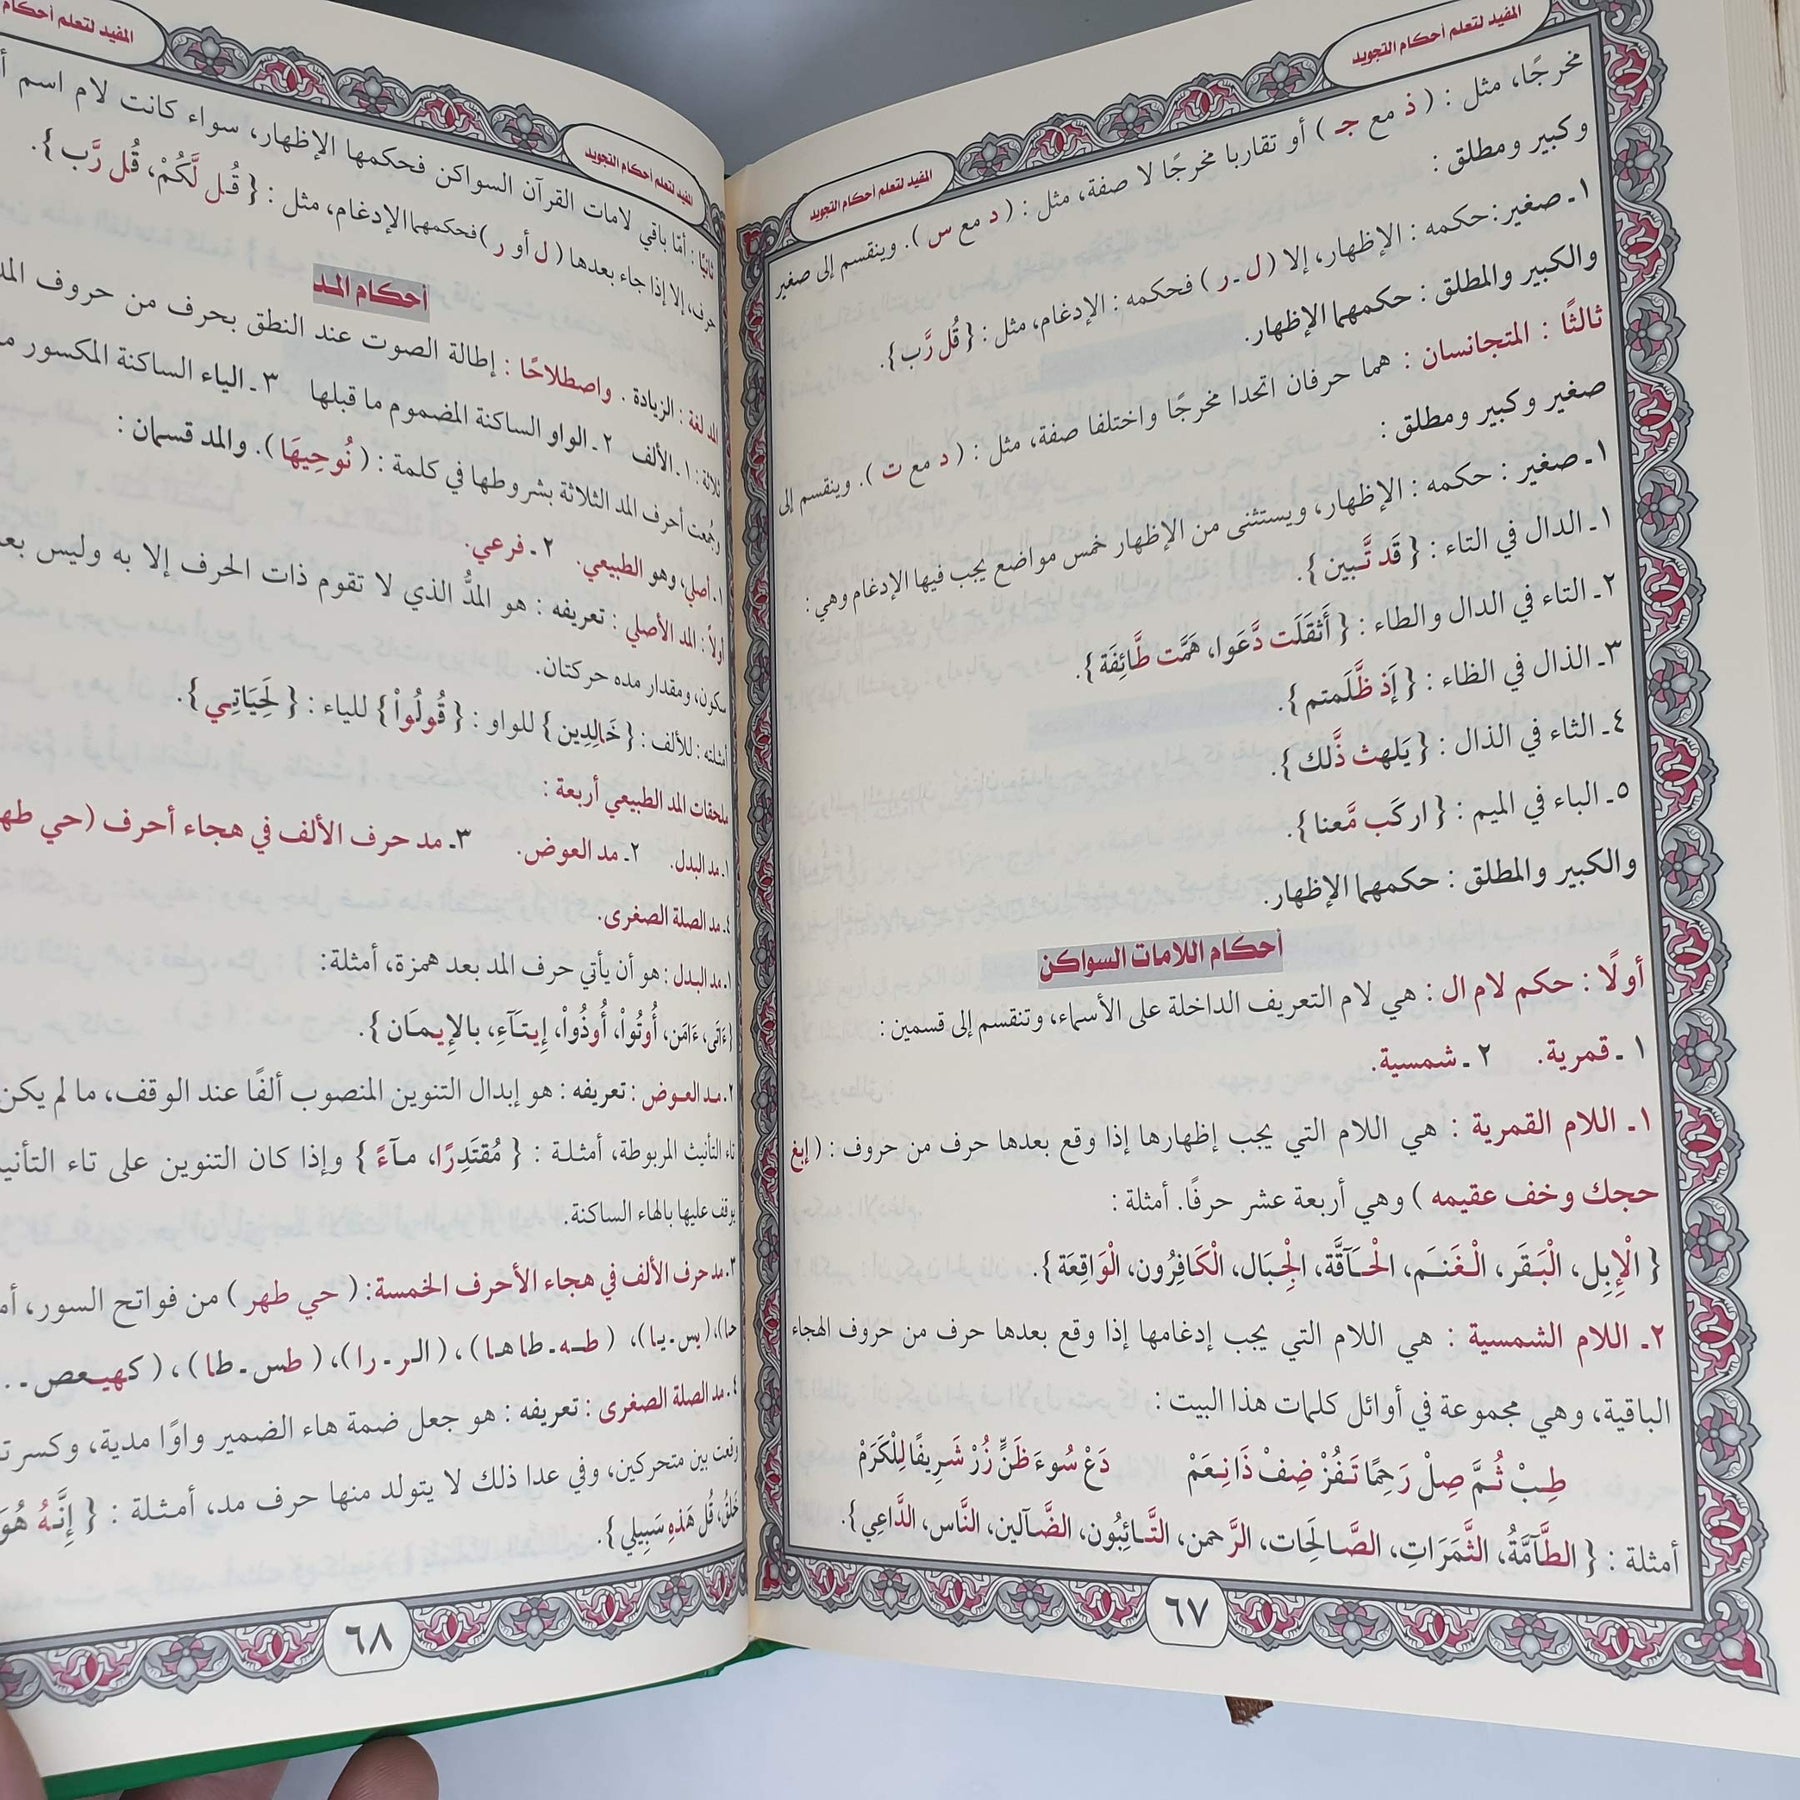 المفيد لتعلم أحكام التجويد
المفيد لتعلم أحكام التجويد
مخرجًا، مثل : ( ذ مع جـ ) أو تقاربا مخرجًا لا صفة، مثل : ( د مع س ). وينقسم إلى صغير
وكبير ومطلق :
١ـ صغير: حكمه : الإظهار، إلا ( ل ـ ر ) فحكمه : الإدغام، مثل : { قُل رَّب }.
والكبير والمطلق : حكمهما الإظهار.
ثالثًا : المتجانسان : هما حرفان اتحدا مخرجًا واختلفا صفة، مثل : ( د مع ت ). وينقسم إلى
صغير وكبير ومطلق :
١ـ صغير : حكمه : الإظهار، ويستثنى من الإظهار خمس مواضع يجب فيها الإدغام وهي :
١ـ الدال في التاء : { قَد تَّبين }.
٢ـ التاء في الدال والطاء : { أَثقَلَت دَّعَوا، هَمَّت طَّائِفَة }.
٣ـ الذال في الظاء : { إَذ ظَّلَمتم }.
٤ـ الثاء في الذال : { يَلهث ذَّلك }.
٥ـ الباء في الميم : { اركَب مَّعنا }.
والكبير والمطلق : حكمهما الإظهار.
أحكام اللامات السواكن
أولًا : حكم لام ال : هي لام التعريف الداخلة على الأسماء، وتنقسم إلى قسمين :
١ ـ قمرية. ٢ ـ شمسية.
١ـ اللام القمرية : هي اللام التي يجب إظهارها إذا وقع بعدها حرف من حروف : ( إبغ
حجك وخف عقيمه ) وهي أربعة عشر حرفًا. أمثلة :
{ الْإِبِل، الْبَقَر، الْغَنَم، الْحَآقَّة، الْجِبَال، الْكَافِرُون، الْوَاقِعَة }.
٢ـ اللام الشمسية : هي اللام التي يجب إدغامها إذا وقع بعدها حرف من حروف الهجاء
الباقية، وهي مجموعة في أوائل كلمات هذا البيت :
طِبْ ثُمَّ صِلْ رَحِمًا تَفُزْ ضِفْ ذَا نِعَمْ دَعْ سُوءَ ظَنٍّ زُرْ شَرِيفًا لِلْكَرَمْ
أمثلة : { الطَّآمَّةُ، الثَّمَرَاتِ، الصَّالِحَات، الرَّحمن، التَّائِبُون، الضَّآلين، النَّاس، الدَّاعِي }.
٦٧
المفيد لتعلم أحكام
المفيد لتعلم أحكام التجويد
ثانيًا : أمّا باقي لامات القرآن السواكن فحكمها الإظهار، سواء كانت لام اسم
حرف، إلا إذا جاء بعدها ( ل أو ر ) فحكمهما الإدغام، مثل : { قُل لَّكُمْ، قُل رَّب }.
أحكام المد
المد لغة : الزيادة . واصطلاحًا : إطالة الصوت عند النطق بحرف من حروف المد
ثلاثة : ١ـ الألف ٢ ـ الواو الساكنة المضموم ما قبلها ٣ ـ الياء الساكنة المكسور
وجُمعت أحرف المد الثلاثة بشروطها في كلمة : ( نُوحِيهَا ). والمد قسمان :
١ـ أصلي، وهو الطبيعي. ٢ ـ فرعي.
أولاً : المد الأصلي : تعريفه : هو المدُّ الذي لا تقوم ذات الحرف إلا به وليس
سكون، ومقدار مده حركتان.
أمثلته : للألف : { خَالِدِين } للواو : { قُولُواْ } للياء : { لَحِيَاتِي }.
ملحقات المد الطبيعي أربعة :
١ـ مد البدل. ٢ـ مد العوض. ٣ـ مد حرف الألف في هجاء أحرف (حي
٤ـ مد الصلة الصغرى.
١ـ مد البدل : هو أن يأتي حرف المد بعد همزة، أمثلة:
{ءَاتَى، ءَامَن، أُوتُواْ، أُوذُواْ، إِيتَآءِ، بالإِيمَان }.
٢ـ مد العوض : تعريفه : هو إبدال التنوين المنصوب ألفًا عند الوقف، ما لم يكن
تاء التأنيث المربوطة، أمثلة : { مُقتَدِرًا، مآءً } وإذا كان التنوين على تاء
يوقف عليها بالهاء الساكنة.
٣ـ مد حرف الألف في هجاء الأحرف الخمسة: ( حي طهر ) من فواتح السور،
حا)، (يس ـ يا)، ( طـه ـ طا هـا )، ( الـر ـ را )، ( طس ـ طا )، ( كهيـعص ـ
٤ـ مد الصلة الصغرى : تعريفه : هو جعل ضمة هاء الضمير واوًا مدية،
وقعت بين متحركين، وفي عدا ذلك لا يتولد منها حرف مد، أمثلة : { إِنَّهُ هُوَ
خَلَقُ، قُل هَذِهِ سَبِيلي }.
٦٨